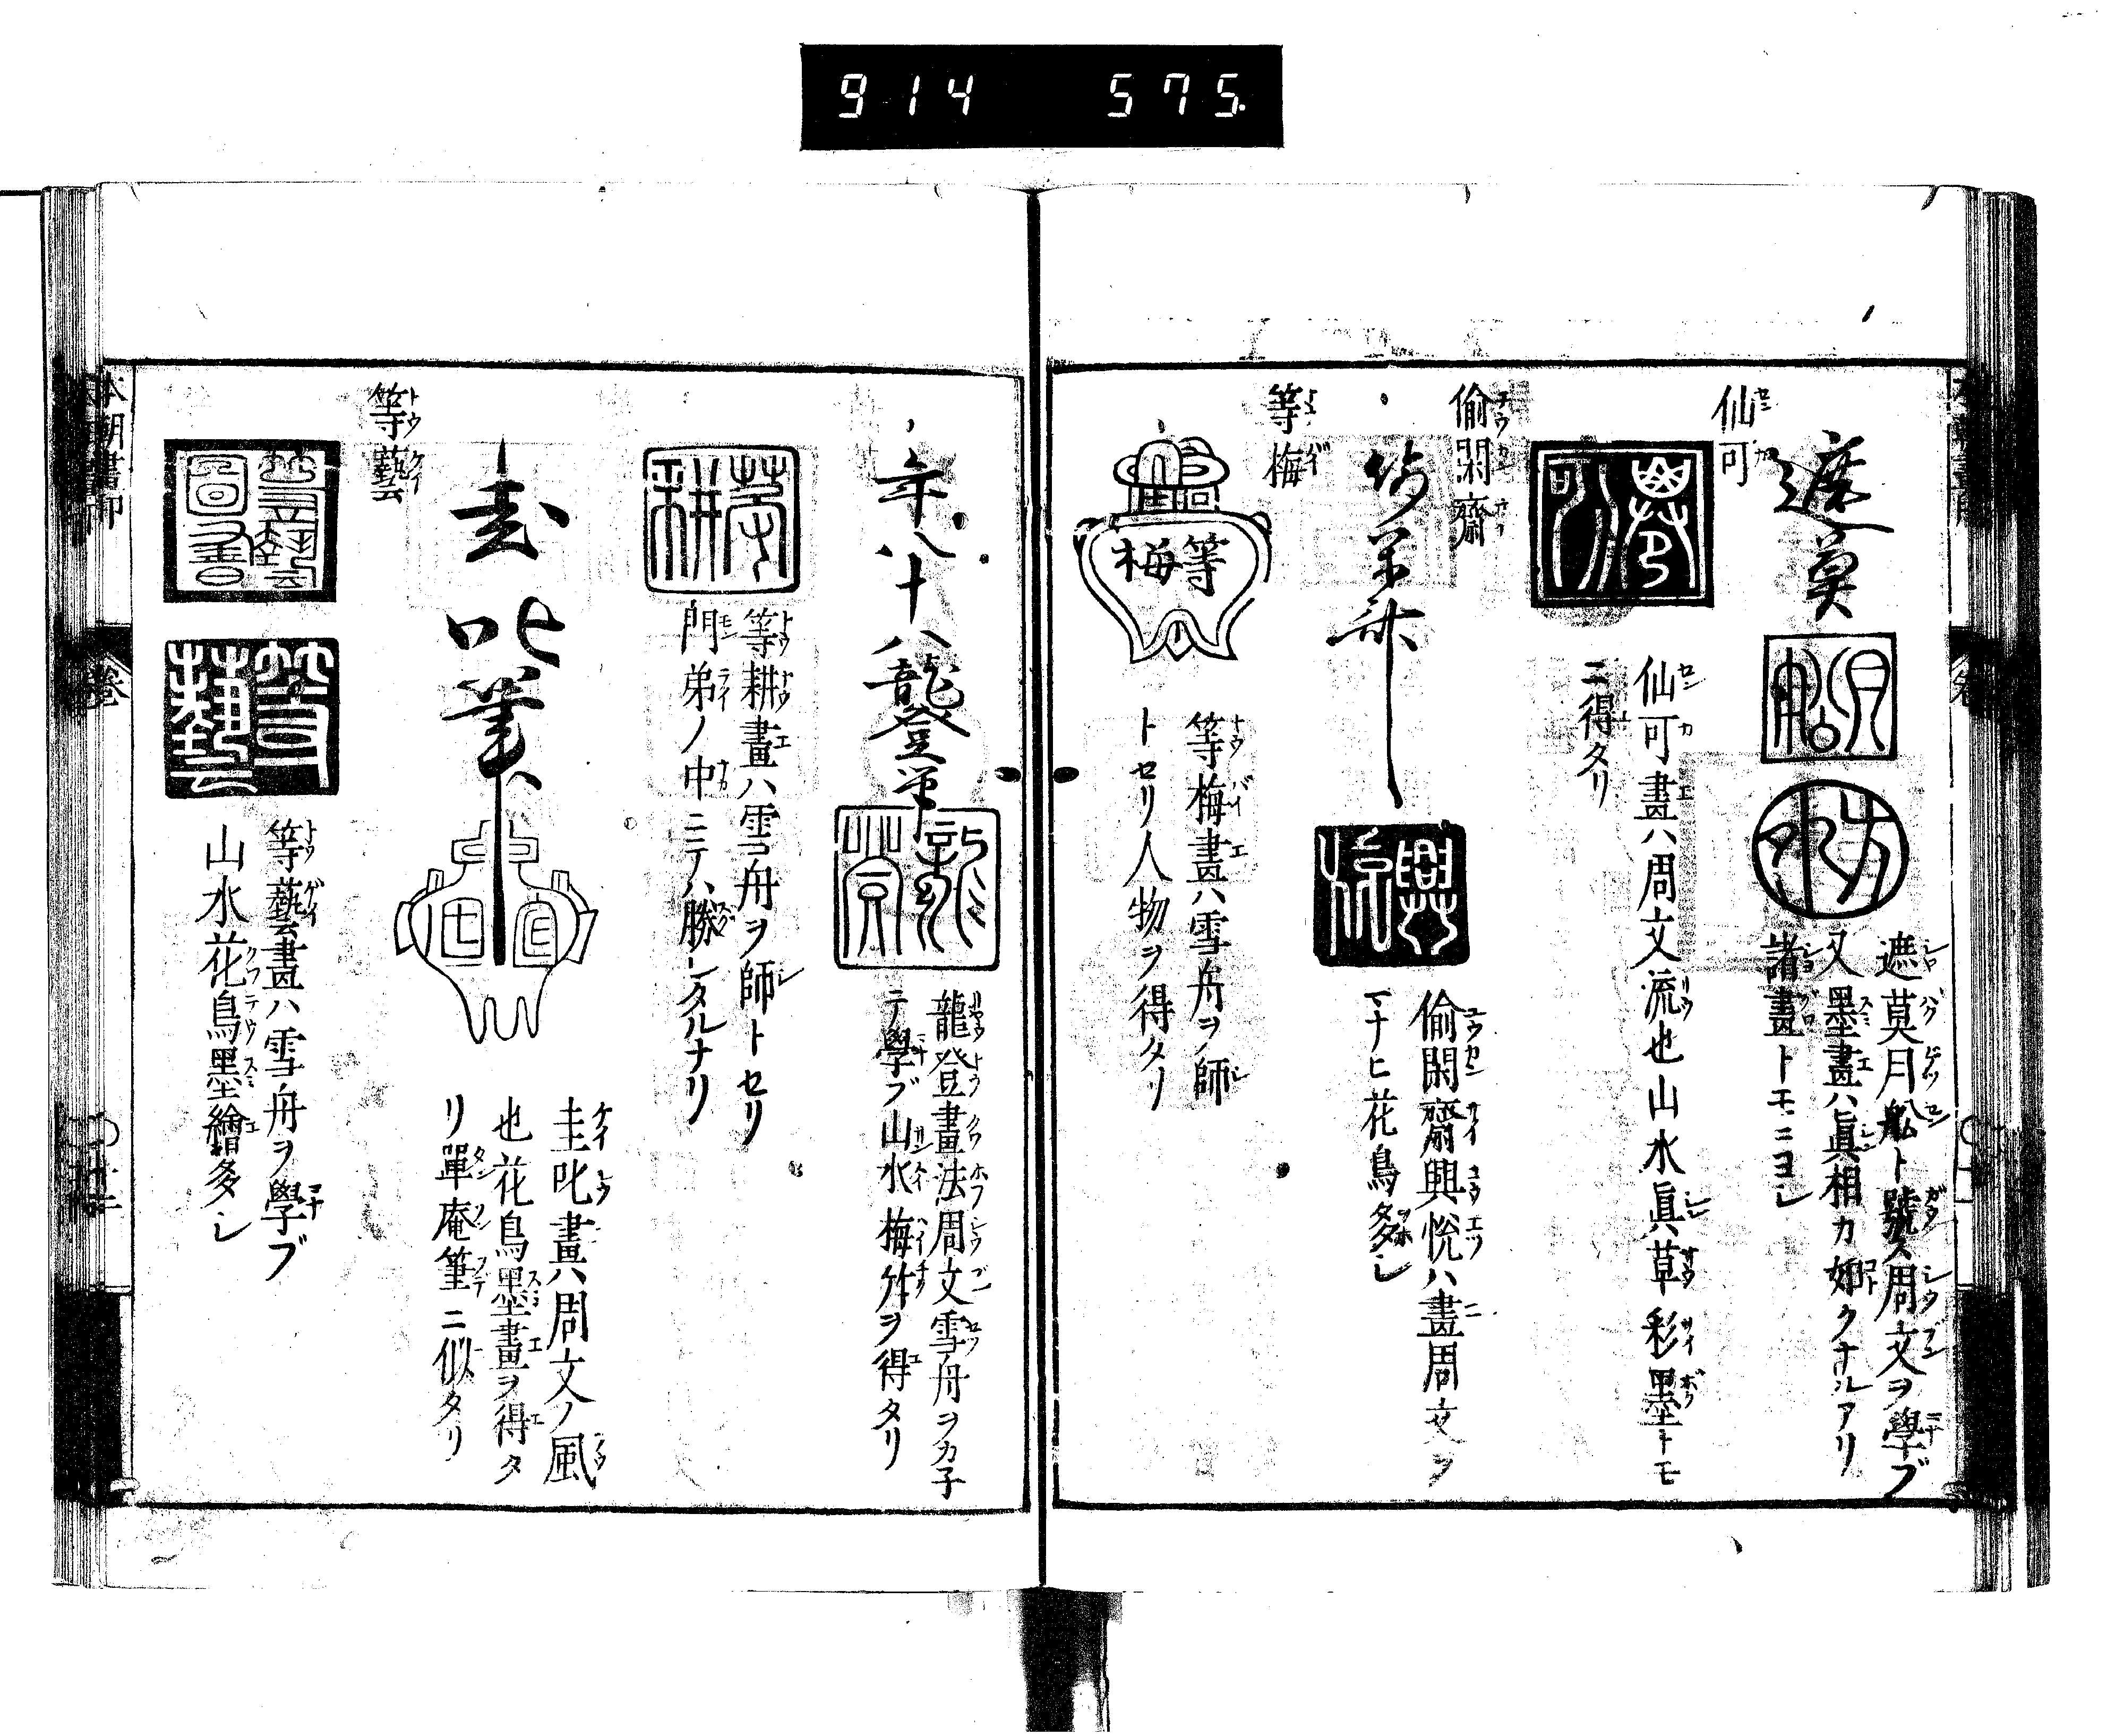 914 575
遮莫
遮莫月舩ト號ス周文ヲ學ブ
又墨畫ハ眞相カ如クナルアリ
諸畫トモニヨシ
仙可
仙可畫ハ周文流也山水眞草彩墨トモ
ニ得タリ
偷閑齋
偷閑齋興悅ハ畫周文ヲ
マナヒ花鳥多シ
等梅
等梅
等梅畫ハ雪舟ヲ師
トセリ人物ヲ得タリ
年八十八龍登筆
龍登畫法周文雪舟ヲカ子
テ學ブ山水梅竹ヲ得タリ
等耕畫ハ雪舟ヲ師トセリ
門弟ノ中ニテハ勝レタルナリ
圭叱筆
圭叱畫ハ周文ノ風
也花鳥墨畫ヲ得タ
リ單庵筆ニ似タリ
等藝
等藝畫ハ雪舟ヲ學ブ
山水花鳥墨繪多シ
本朝畫印
卷